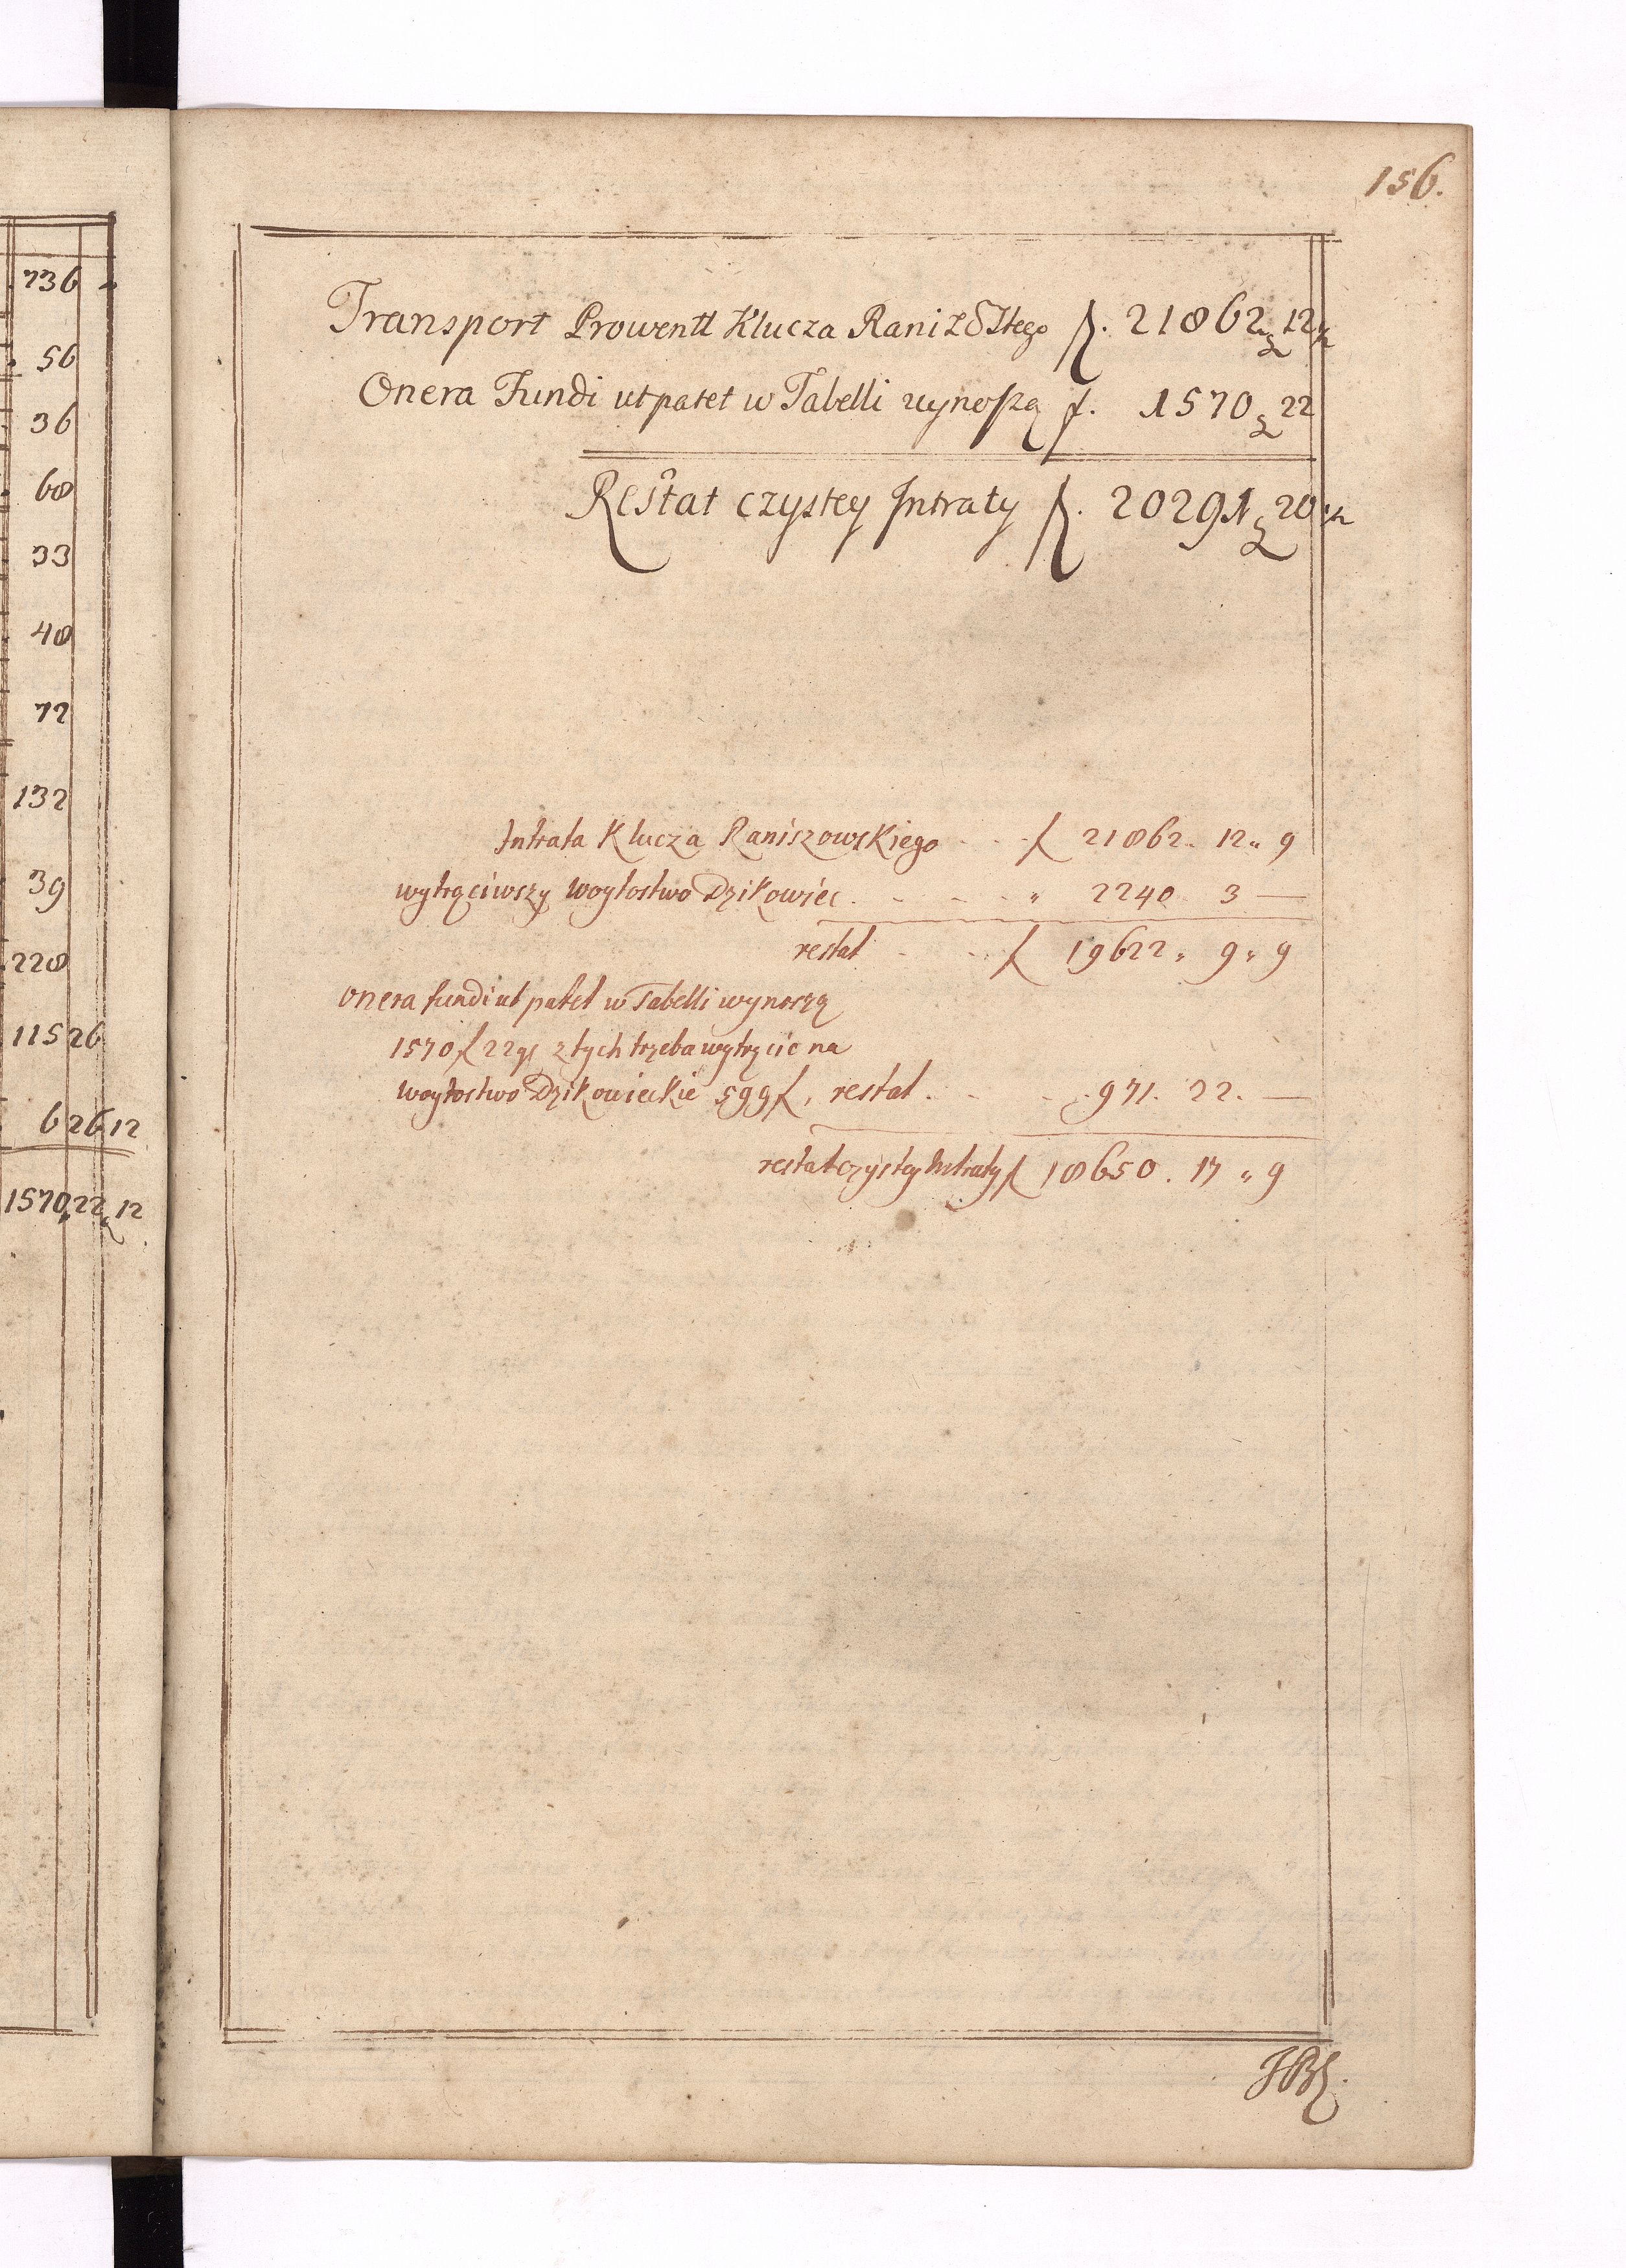 736
56
36
68
33
48
72
132
39
228
115 26
6 26 12
1570,22,12
156.
Transport Prowentt Klucza Raniżo Stego f. 21862 „ 12 ½
Onera Fundi ut patet w Tabelli wynoszą f. 1570 „ 22
Restat czystey Intraty f. 20291 „ 20 ½
Intrata Klucza Raniszowskiego - - f 21862. 12 „ 9
wytrąciwszy woytostwo Dzikowiec. - - - - „ 2240 3 —
restat - - f 19622 „ 9 „ 9
onera fundi ut patet w Tabelli wynoszą
1570 f 22 gr z tych trzeba wytrącic na
woytostwo Dzikowieckie 599 f, restat. - - 971. 22. —
restat czystey Intraty f 18650. 17 „ 9